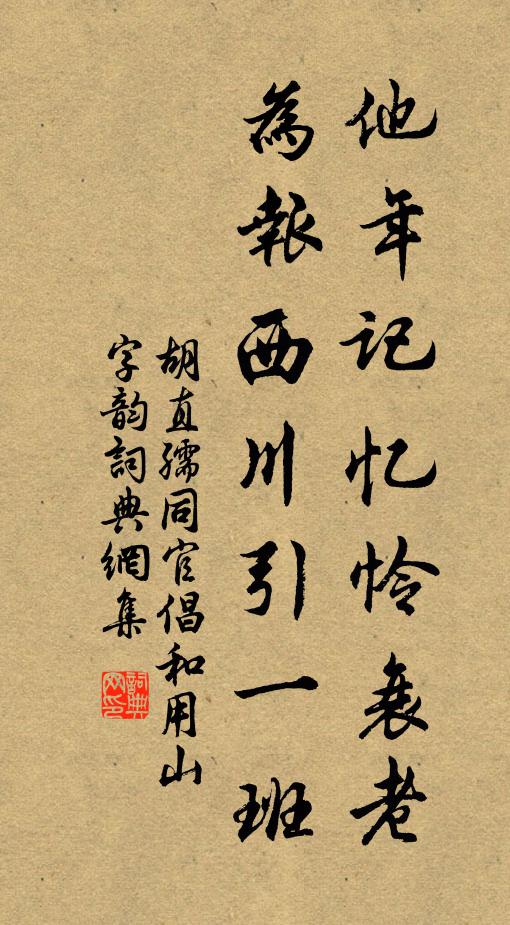 他年记忆怜衰老
為報西川引一班
胡直孺同官倡和用山
字韵詞典網集
詞典网印